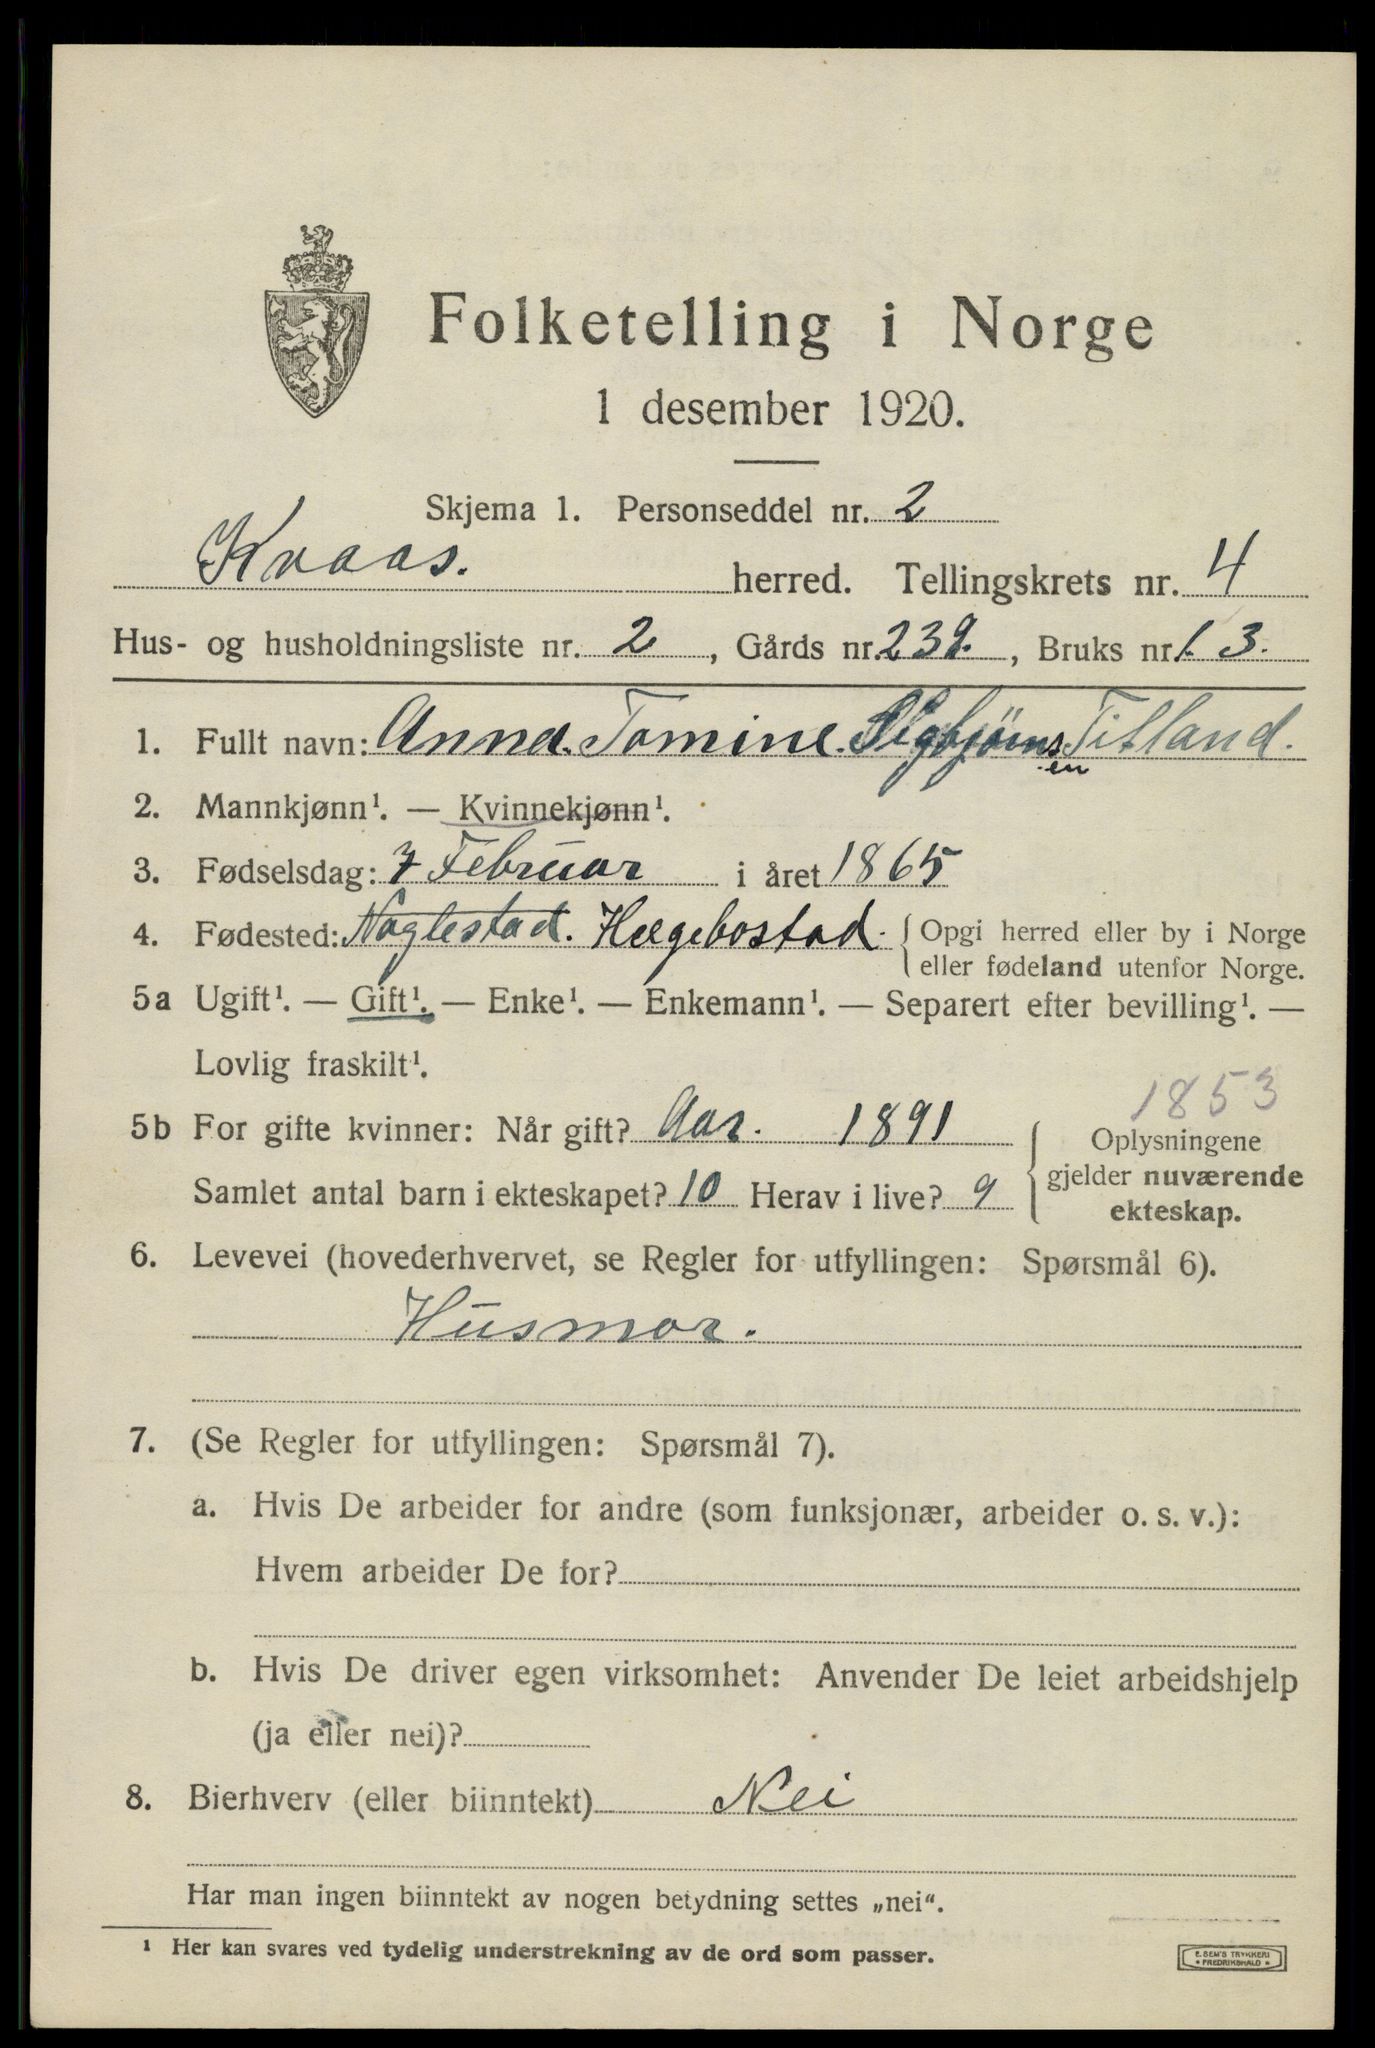 Folketelling i Norge
1 desember 1920.
Skjema 1. Personseddel nr. 2
Kvaas. herred. Tellingskrets nr. 4
Hus- og husholdningsliste nr. 2, Gårds nr. 239., Bruks nr. 1. 3.
1. Fullt navn: Anna. Tomine. Sigbjørns Titland.
en
2. Mannkjønn¹. — Kvinnekjønn¹.
3. Fødselsdag: 7 Februar i året 1865
4. Fødested: Naglestad. Hægebostad. Opgi herred eller by i Norge
eller fødeland utenfor Norge.
5a Ugift¹. — Gift¹. — Enke¹. — Enkemann¹. — Separert efter bevilling¹. —
Lovlig fraskilt¹.
1853
5b For gifte kvinner: Når gift? Aar. 1891 Oplysningene
gjelder nuværende
Samlet antal barn i ekteskapet? 10 Herav i live? 9 ekteskap.
6. Levevei (hovederhvervet, se Regler for utfyllingen: Spørsmål 6).
Husmor.
7. (Se Regler for utfyllingen: Spørsmål 7).
a. Hvis De arbeider for andre (som funksjonær, arbeider o. s. v.):
Hvem arbeider De for?
b. Hvis De driver egen virksomhet: Anvender De leiet arbeidshjelp
(ja eller nei)?
8. Bierhverv (eller biinntekt) Nei
Har man ingen biinntekt av nogen betydning settes „nei“.
¹ Her kan svares ved tydelig understrekning av de ord som passer.
E. SEM'S TRYKKERI
* FREDRIKSHALD *